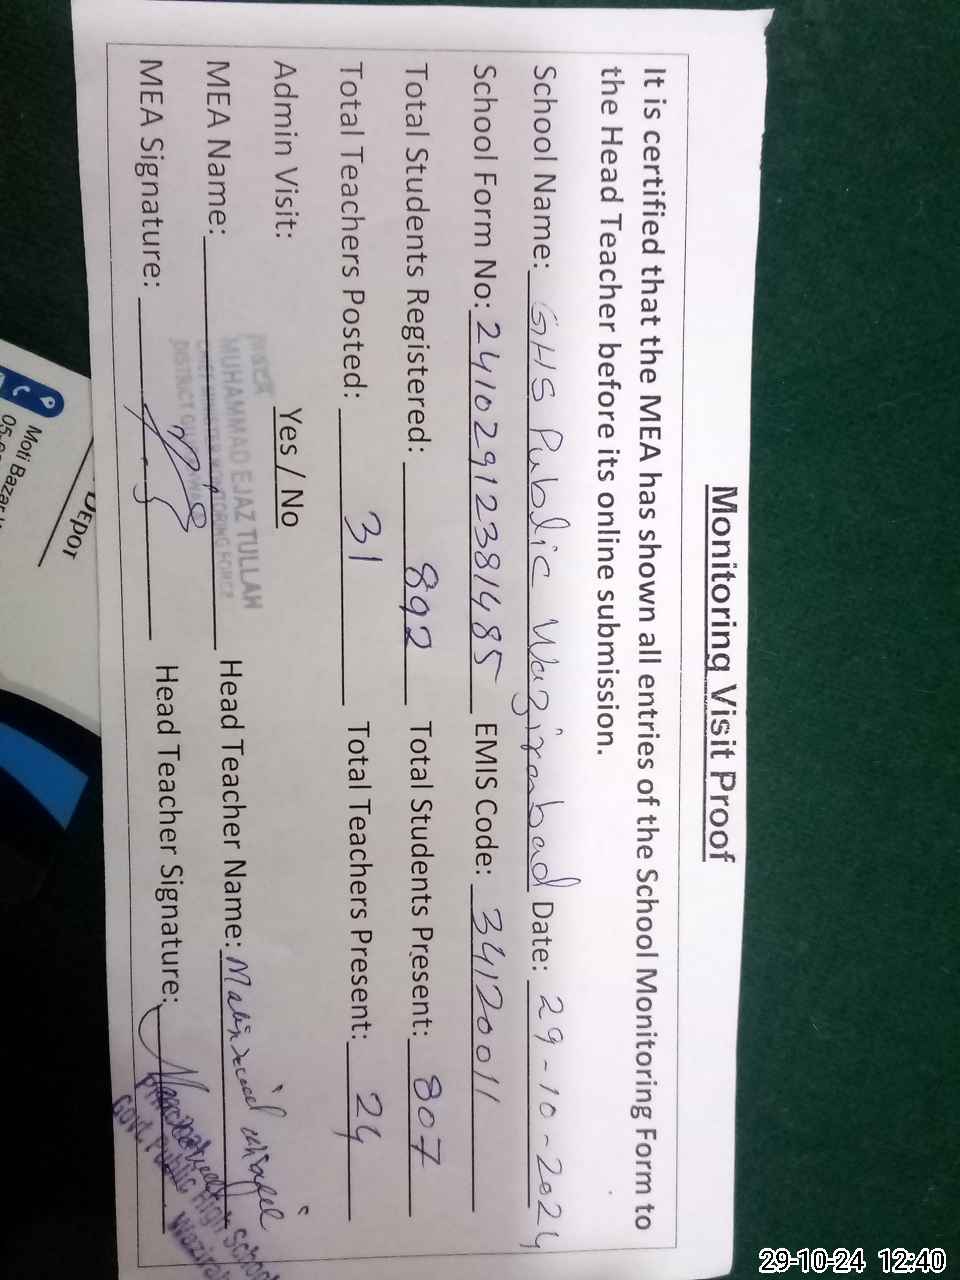 Monitoring Visit Proof
It is certified that the MEA has shown all entries of the School Monitoring Form to
the Head Teacher before its online submission.
School Name: GHS Public Wazirabad Date: 29-10-2024
School Form No: 24102912381485 EMIS Code: 34120011
Total Students Registered: 892 Total Students Present: 807
Total Teachers Posted: 31 Total Teachers Present: 24
Admin Visit: Yes / No
MEA Name: MUHAMMAD EJAZ TULLAH Head Teacher Name:
MEA Signature: Head Teacher Signature:
Govt. Public High School
Depor
Moti Bazar
29-10-24 12:40